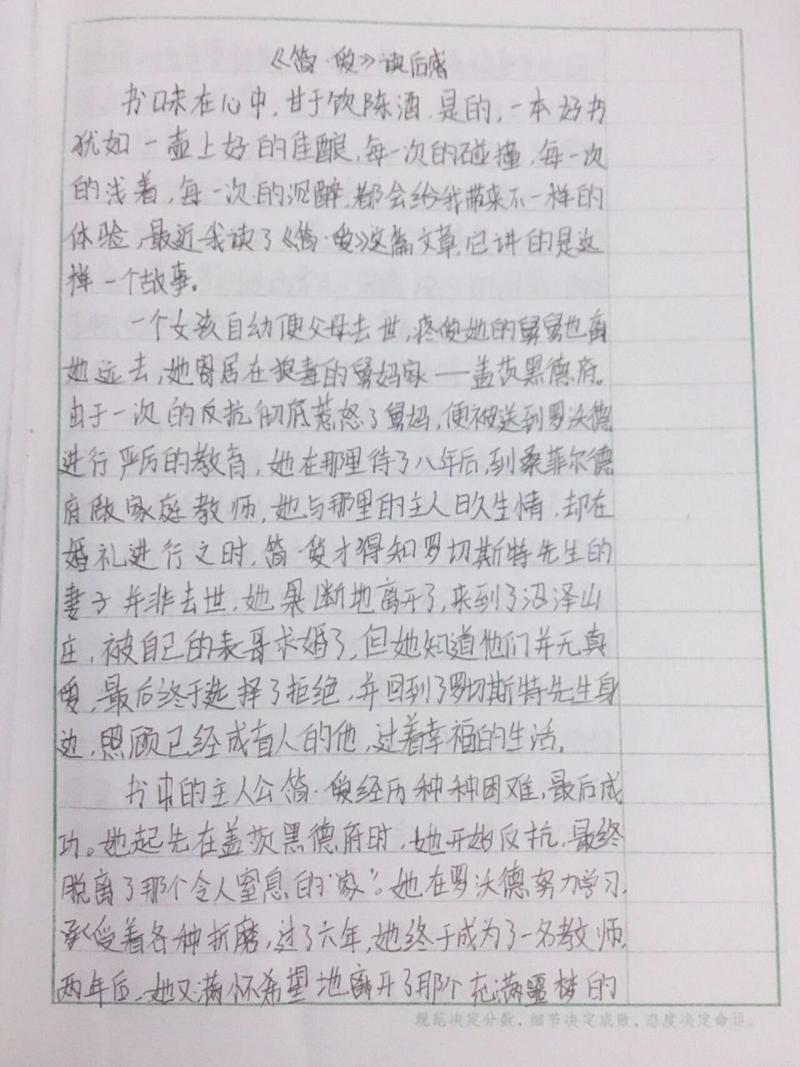 《简·爱》读后感
书味在心中，甘于饮陈酒，是的，一本好书
犹如一壶上好的佳酿，每一次的碰撞，每一次
的浅着，每一次的沉醉，都会给我带来不一样的
体验，最近我读了《简·爱》这篇文章，它讲的是这
样一个故事。
一个女孩自幼便父母去世，疼爱她的舅舅也离
她远去，她寄居在狠毒的舅妈家——盖茨黑德府。
由于一次的反抗彻底惹怒了舅妈，便被送到罗沃德
进行严厉的教育，她在那里待了八年后，到桑菲尔德
府做家庭教师，她与那里的主人日久生情，却在
婚礼进行之时，简·爱才得知罗切斯特先生的
妻子并非去世，她果断地离开了，来到了沼泽山
庄，被自己的表哥求婚了，但她知道他们并无真
爱，最后终于选择了拒绝，并回到了罗切斯特先生身
边，照顾已经成盲人的他，过着幸福的生活。
书中的主人公简·爱经历种种困难，最后成
功。她起先在盖茨黑德府时，她开始反抗，最终
脱离了那个令人窒息的“家”。她在罗沃德努力学习，
承受着各种折磨，过了六年，她终于成为了一名教师，
两年后，她又满怀希望地离开了那个充满噩梦的
规范决定分数，细节决定成败，态度决定命运。